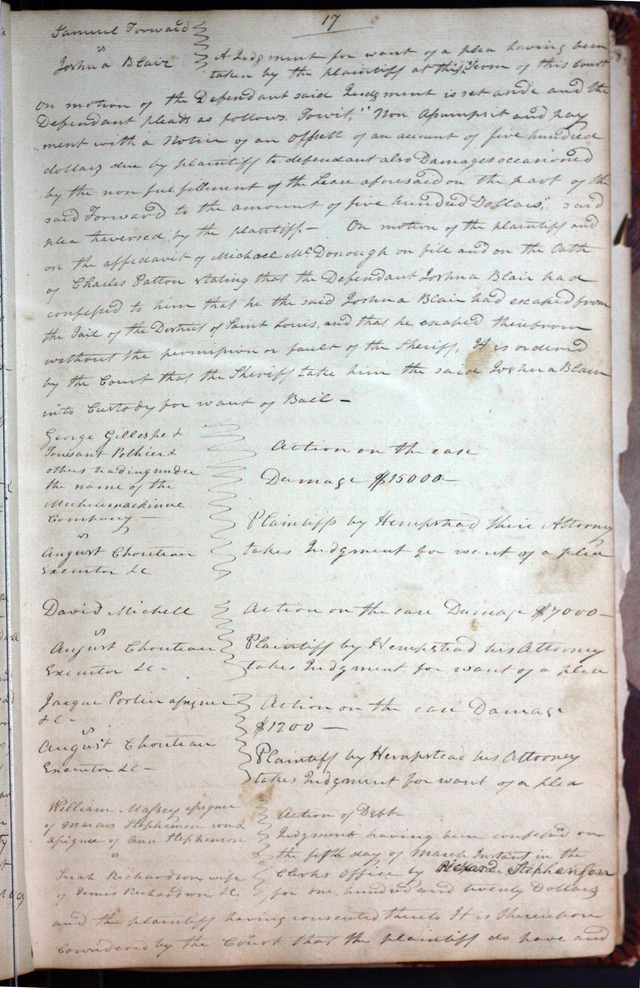 17
Samuel Forward
vs
Joshua Blair
A Judgment for want of a plea having been
taken by the plaintiff at this term of this Court
on motion of the Defendant said Judgment is set aside and the
Defendant pleads as follows. Towit, "Non Assumpsit and pay
"ment with a Notice of an Offsett of an account of five hundred
dollars due by plaintiff to defendant also Damages occasioned
by the non fulfillment of the Lease aforesaid on the part of the
said Forward to the amount of five hundred Dollars," said
plea traversed by the plaintiff — On motion of the plaintiff and
on the affidavit of Michael McDonough on file and on the Oath
of Charles Patton stating that the Defendant Joshua Blair had
confessed to him that he the said Joshua Blair had escaped from
the Jail of the District of Saint Louis, and that he escaped therefrom
without the permission or fault of the Sheriff, It is ordered
by the Court that the Sheriff take him the said Joshua Blair
into Custody for want of Bail —
George Gillespie &
Tousant Pothier &
others trading under
the name of the
Michilimackinac
Company —
vs
August Chouteau
Executor &c
Action on the case
Damage $15000—
Plaintiffs by Hempstead their Attorney
takes Judgment for want of a plea
David Michell
vs
August Chouteau
Executor &c —
Action on the case Damage $7000—
Plaintiff by Hempstead his Attorney
takes Judgment for want of a plea
Jacque Portier assignee
&c —
vs
August Chouteau
Executor &c —
Action on the case Damage
$1200 —
Plaintiff by Hempstead his Attorney
takes Judgment for want of a plea
William Massey assignee
of Marcus Stephenson
assignee of Ann Stephenson
vs
Sarah Richardson wife
of James Richardson &c
Action of Debt
Judgment having been confessed on
the fifth day of March Instant in the
Clerks Office by Stephenson
for one hundred and twenty Dollars
and the plaintiff having consented thereto It is thereupon
considered by the Court that the plaintiff do have and